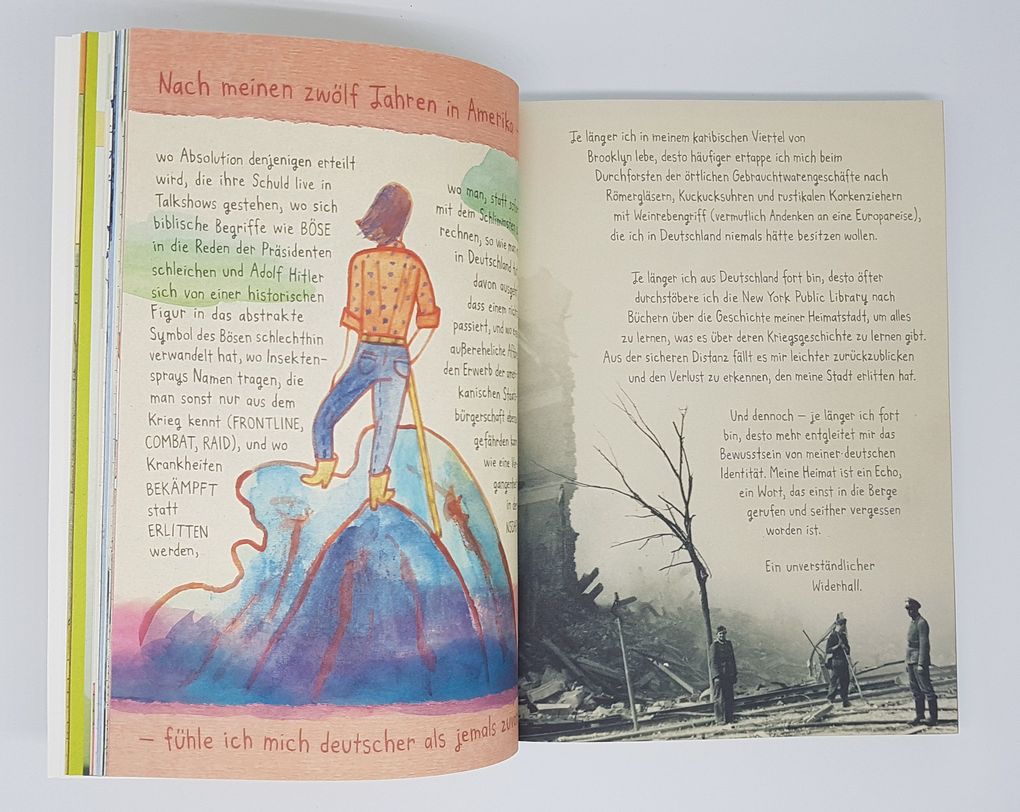 Nach meinen zwölf Jahren in Amerika –
wo Absolution denjenigen erteilt
wird, die ihre Schuld live in
Talkshows gestehen, wo sich
biblische Begriffe wie BÖSE
in die Reden der Präsidenten
schleichen und Adolf Hitler
sich von einer historischen
Figur in das abstrakte
Symbol des Bösen schlechthin
verwandelt hat, wo Insekten-
sprays Namen tragen, die
man sonst nur aus dem
Krieg kennt (FRONTLINE,
COMBAT, RAID), und wo
Krankheiten
BEKÄMPFT
statt
ERLITTEN
werden,
wo man, statt
mit dem Schlimmsten
rechnen, so wie man
in Deutschland
davon
dass einem
passiert, und wo
außereheliche
den Erwerb der
kanischen
bürgerschaft
gefährden
wie eine
in der
– fühle ich mich deutscher als jemals
Je länger ich in meinem karibischen Viertel von
Brooklyn lebe, desto häufiger ertappe ich mich beim
Durchforsten der örtlichen Gebrauchtwarengeschäfte nach
Römergläsern, Kuckucksuhren und rustikalen Korkenziehern
mit Weinrebengriff (vermutlich Andenken an eine Europareise),
die ich in Deutschland niemals hätte besitzen wollen.
Je länger ich aus Deutschland fort bin, desto öfter
durchstöbere ich die New York Public Library nach
Büchern über die Geschichte meiner Heimatstadt, um alles
zu lernen, was es über deren Kriegsgeschichte zu lernen gibt.
Aus der sicheren Distanz fällt es mir leichter zurückzublicken
und den Verlust zu erkennen, den meine Stadt erlitten hat.
Und dennoch – je länger ich fort
bin, desto mehr entgleitet mir das
Bewusstsein von meiner deutschen
Identität. Meine Heimat ist ein Echo,
ein Wort, das einst in die Berge
gerufen und seither vergessen
worden ist.
Ein unverständlicher
Widerhall.